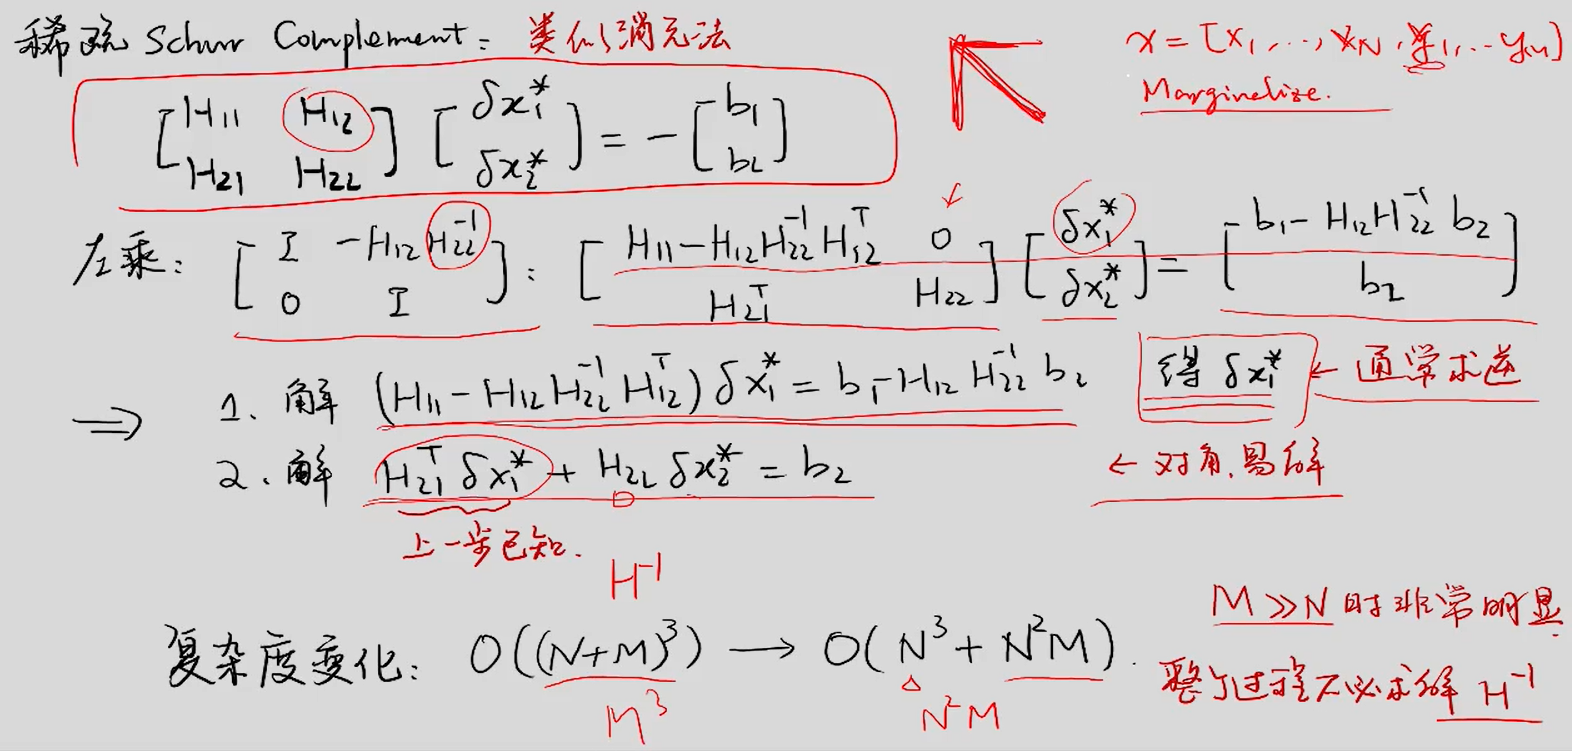 稀疏 Schur Complement: 类似消元法
x = [x₁, ..., x_N, y₁, ... y_M]
Marginalize.
[H₁₁ H₁₂; H₂₁ H₂₂] [δx₁*; δx₂*] = -[b₁; b₂]
左乘: [I -H₁₂H₂₂⁻¹; 0 I] : [H₁₁-H₁₂H₂₂⁻¹H₁₂ᵀ 0; H₂₁ᵀ H₂₂] [δx₁*; δx₂*] = [b₁-H₁₂H₂₂⁻¹b₂; b₂]
⇒ 1. 解 (H₁₁-H₁₂H₂₂⁻¹H₁₂ᵀ) δx₁* = b₁-H₁₂H₂₂⁻¹b₂ 得 δx₁* ← 通常求逆
2. 解 H₂₁ᵀ δx₁* + H₂₂ δx₂* = b₂ ← 对角,易解
上一步已知.
H⁻¹
M≫N 时非常明显.
复杂度变化: O((N+M)³) → O(N³+N²M).
整个过程不必求解 H⁻¹
M³ N²M